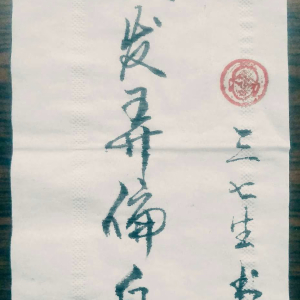 发弄偏
三七生